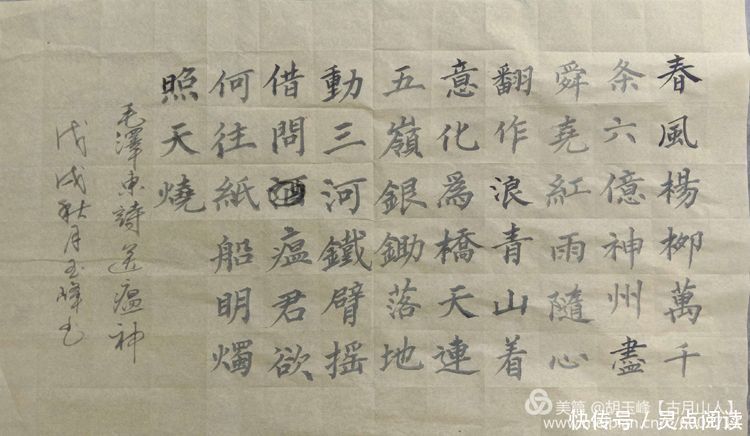 春風楊柳萬千
条六億神州盡
舜堯紅雨隨心
翻作浪青山着
意化爲橋天連
五嶺銀鋤落地
動三河鐵臂摇
借問瘟君欲
何往紙船明燭
照天燒
毛澤東詩送瘟神
戊戌秋月玉峰书
美篇 @胡玉峰【古月山人】
快传号/灵点阅读